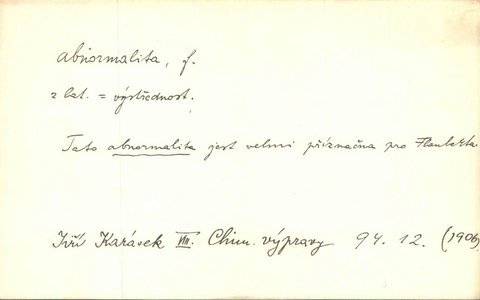 abnormalita, f.
z lat. = výstřednost.
Tato abnormalita jest velmi příznačna pro Flauberta
Jiří Karásek VIII. Chim. výpravy 94. 12. (1906)